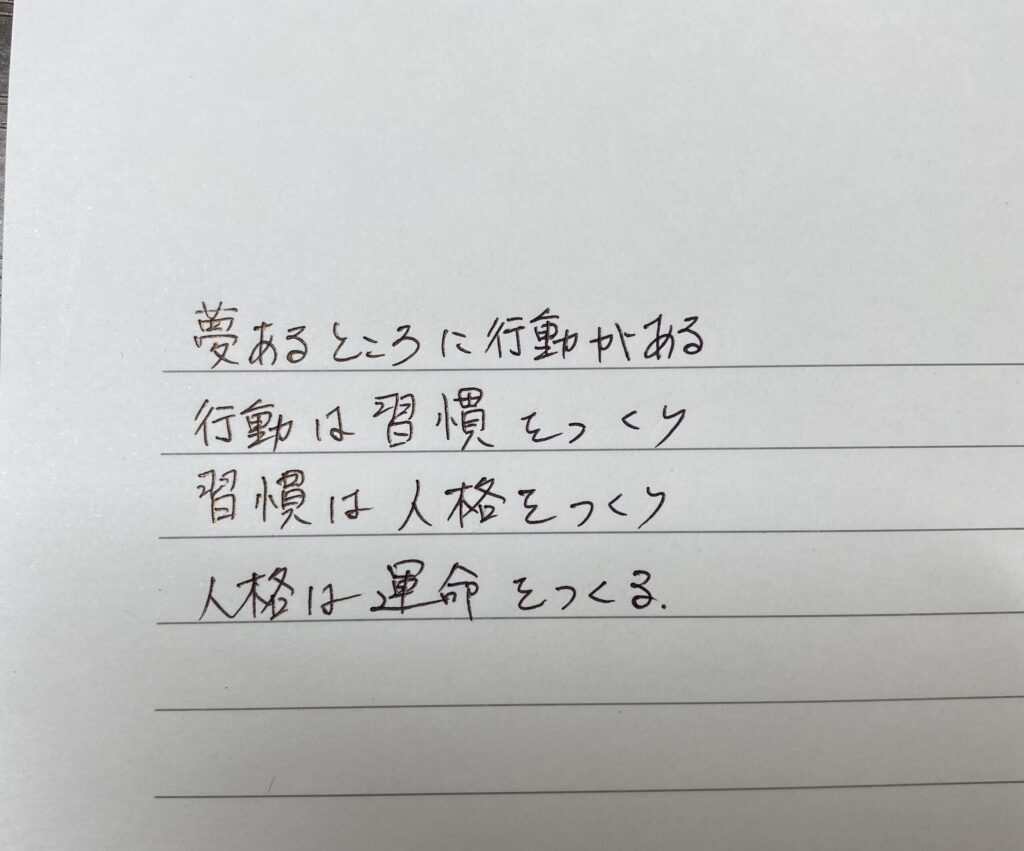 夢あるところに行動がある
行動は習慣をつくり
習慣は人格をつくり
人格は運命をつくる.